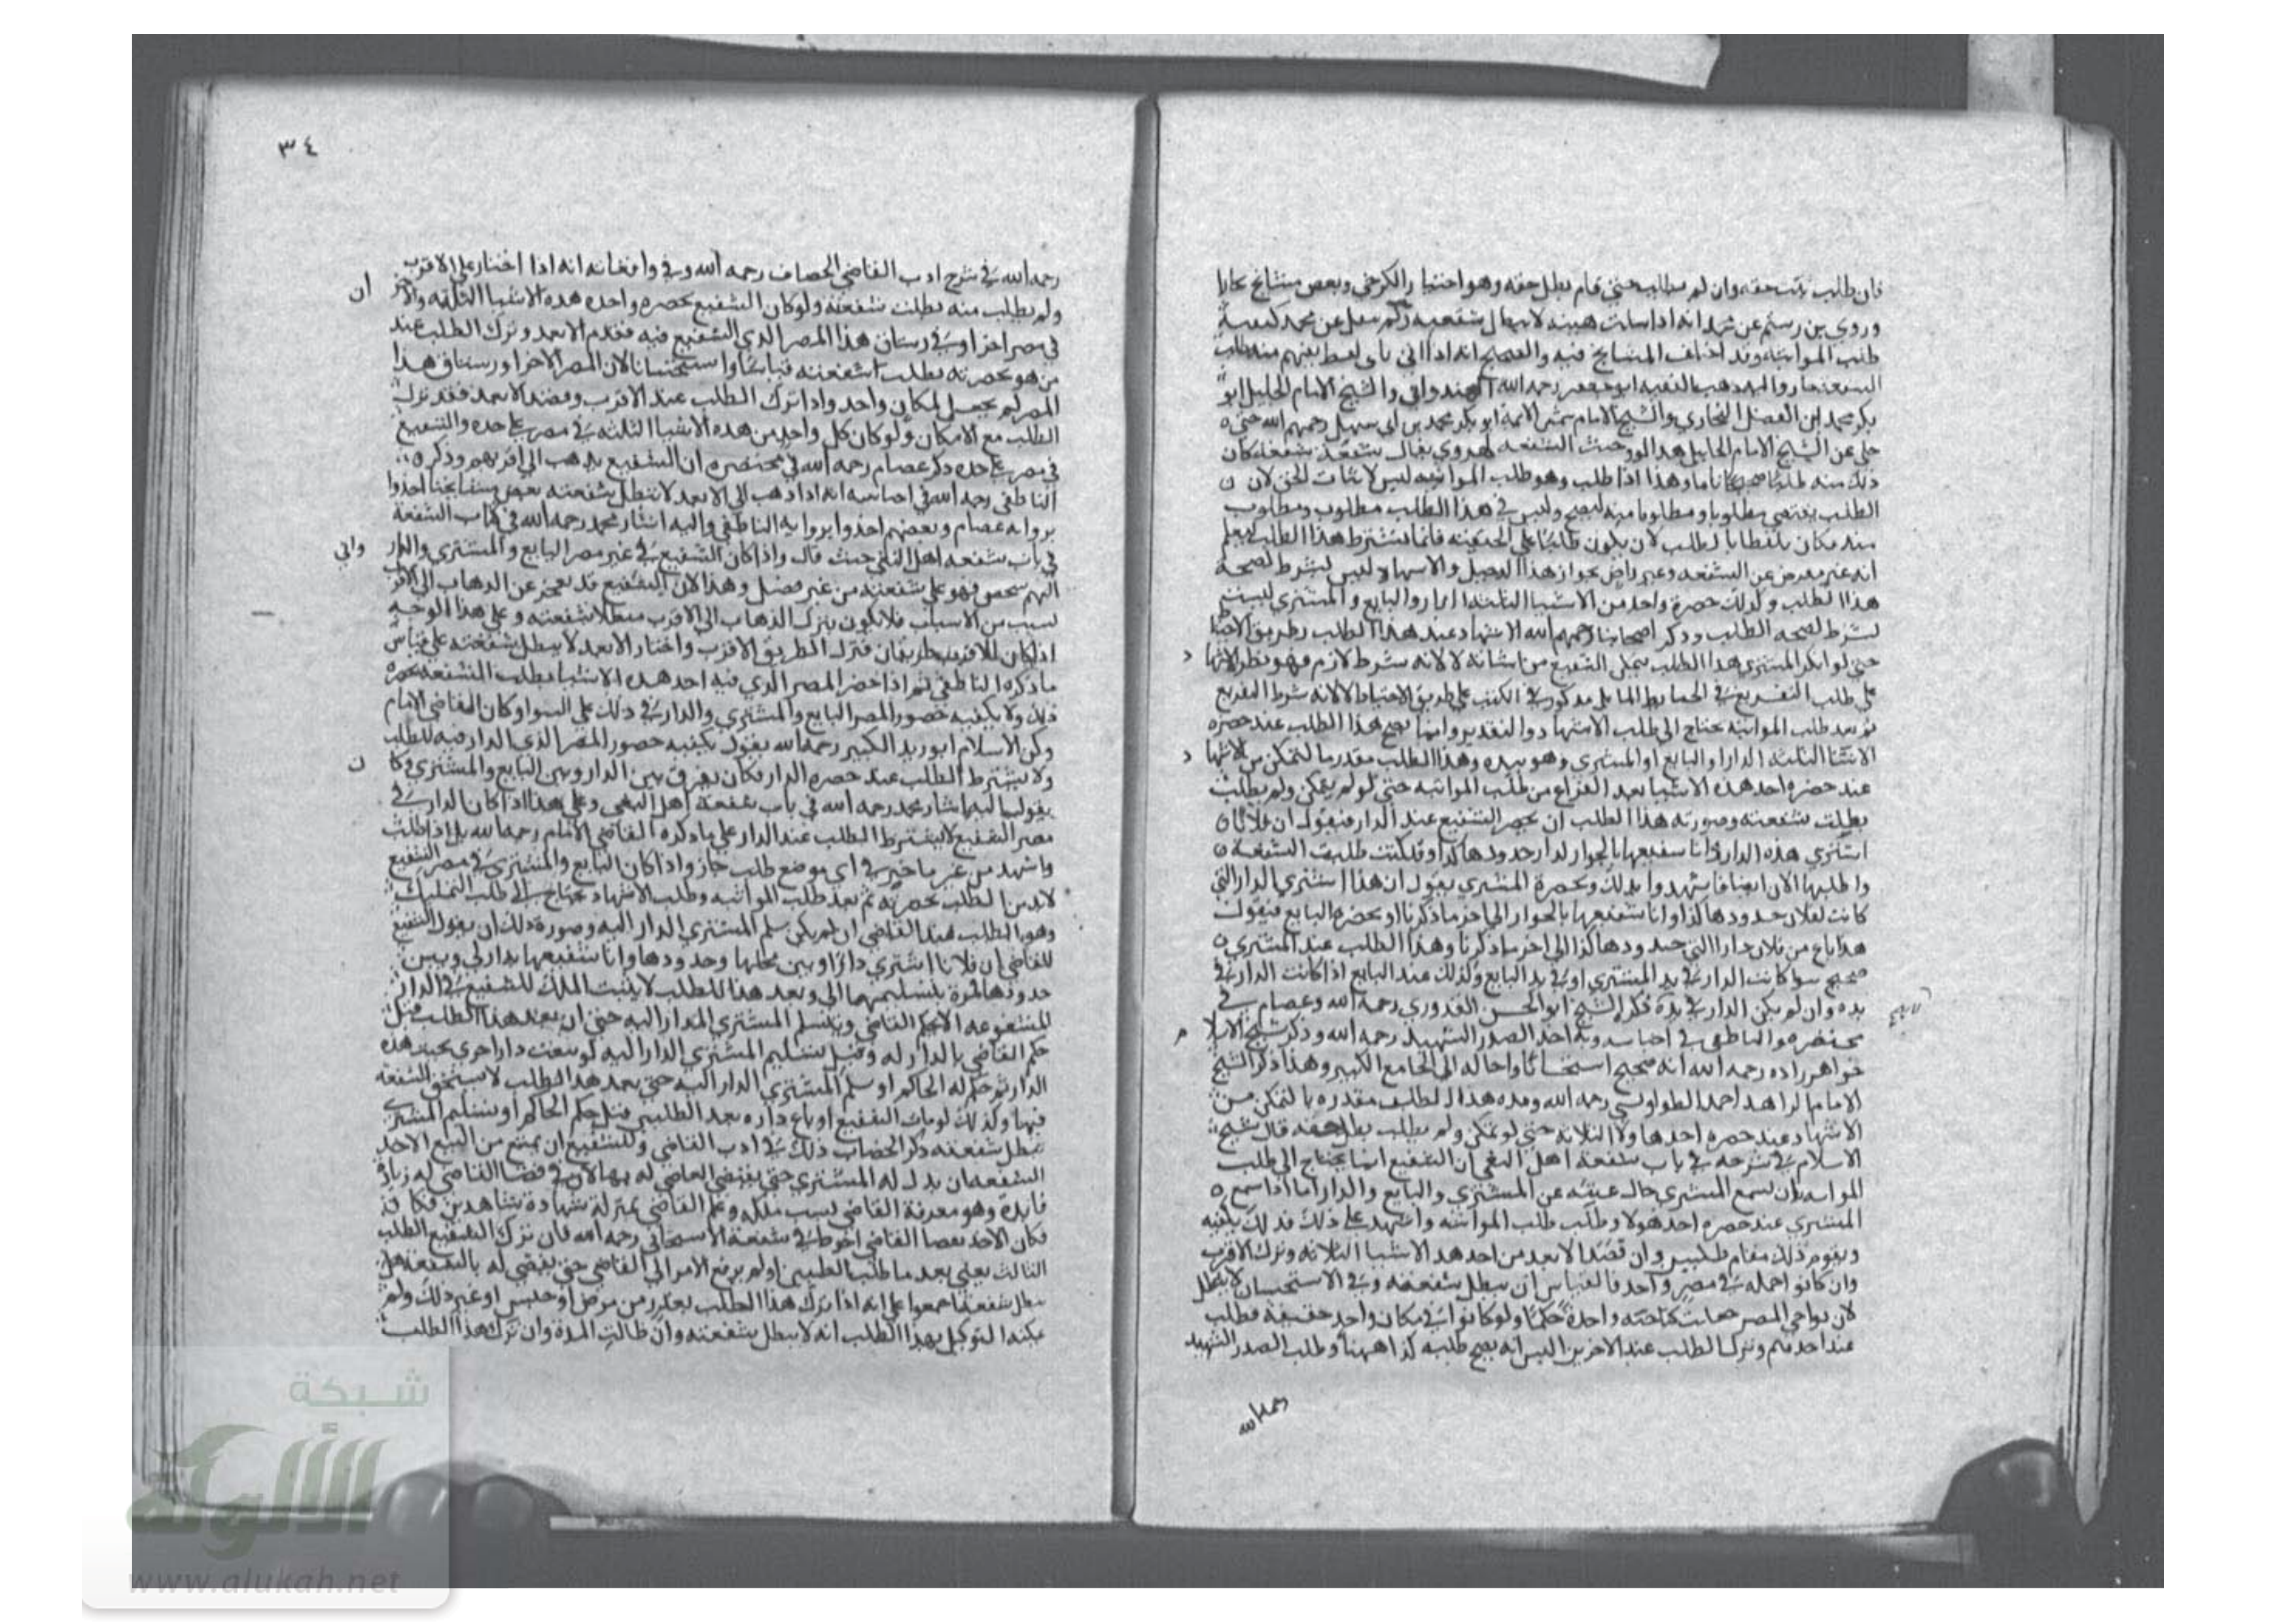 فان طلب ثبت حقه وان لم يطلب حتى قام بطل حقه وهو اختيار الكرخي وبعض مشائخ بخارا
وروي بن رستم عن محمد انه اذا سكت هنيهة لا يبطل شفعته
طلب المواثبة وقد اختلف المشايخ فيه والصحيح انه اذا اتى باي لفظ يفهم منه طلب
الشفعة جاز واليه ذهب الفقيه ابو جعفر رحمه الله الهندواني والشيخ الامام الجليل ابو
بكر محمد ابن الفضل البخاري والشيخ الامام شمس الائمة ابو بكر محمد بن ابي سهل رحمهم الله حتى
حكى عن الشيخ الامام الجليل هذا شفعة شفعة كان
ذلك منه طلبا وهذا اذا طلب وهو طلب المواثبه ليس لاثبات الحق لان
الطلب يقتضي مطلوبا ومطلوبا منه ليصح وليس في هذا الطلب مطلوب ومطلوب
منه فانما يشترط هذا الطلب ليعلم
انه غير معرض عن الشفعه وغير راض بجوار هذا الدخيل والاشهاد ليس بشرط لصحة
هذا الطلب وكذلك حضرة واحد من الاشيا الثلثه الدار والبايع والمشتري ليست
بشرط لصحه الطلب وذكر اصحابنا رحمهم الله الاشهاد عند هذا الطلب بطريق الاحتيا
حتى لو انكر المشتري هذا الطلب يتمكن الشفيع من اثباته لا لانه شرط لازم فهو نظير الاشها د
على طلب التفريغ في الحايط المايل مذكور في الكتب على طريق الاحتياط لا لانه شرط التفريغ
ثم بعد طلب المواثبه يحتاج الى طلب الاشهاد والتقرير وانما يصح هذا الطلب عند حضره
الاشيا الثلثه الدار او البايع او المشتري وهو بيده وهذا الطلب مقدر بالتمكن من الاشها د
عند حضره احد هذه الاشيا بعد الفراغ من طلب المواثبه حتى لو لم يتمكن ولم يطلب
بطلت شفعته وصورة هذا الطلب ان يحضر الشفيع عند الدار فيقول ان فلانا
اشتري هذه الدار وانا شفيعها بالجوار لدار حدودها كذا وقد كنت طلبت الشفعة
واطلبها الان ايضا فاشهدوا بذلك وبحضرة المشتري يقول ان هذا اشتري الدار التي
كانت لفلان حدودها كذا وانا شفيعها بالجوار الى اخر ما ذكرنا او بحضرة البايع فيقول
هذا باع من فلان دارا التي حدودها كذا الى اخر ما ذكرنا وهذا الطلب عند المشتري
صحيح سوا كانت الدار في يد المشتري او في يد البايع وكذلك عند البايع اذا كانت الدار في
يده وان لم يكن الدار في يده ذكر الشيخ ابو الحسن القدوري رحمه الله وعصام في
مختصره والناطفي في اجناسه وبه اخذ الصدر الشهيد رحمه الله وذكر شيخ الاسلا م
خواهر زاده رحمه الله انه صحيح استحسانا واحاله الى الجامع الكبير وهكذا ذكر الشيخ
الامام الزاهد احمد الطواويسي رحمه الله ومده هذا الطلب مقدره بالتمكن من
الاشهاد عند حضره احد هاولا الثلاثه حتى لو تمكن ولم يطلب بطل حقه قال شيخ
الاسلام في شرحه في باب شفعة اهل البغي ان الشفيع انما يحتاج الى طلب
المواثبه بان يسمع المشتري حال غيبته عن المشتري والبايع والدار اما اذا سمع
المشتري عند حضره احد هولا وطلب طلب المواثبه واشهد على ذلك فذلك يكفيه
ويقوم ذلك مقام طلبين وان قصد الابعد من احد هذه الاشيا الثلاثه وترك الاقرب
وان كانوا جمله في مصر واحد فالقياس ان يبطل شفعته وفي الاستحسان لا يبطل
لان نواحي المصر جعلت كناحيه واحدة حكما ولو كانوا في مكان واحد حقيقة فطلب
عند احدهم وترك الطلب عند الاخرين اليس انه يصح طلبه كذا ههنا وطلب الصدر الشهيد
رحمه الله
٣٤
رحمه الله في شرح ادب القاضي الخصاف رحمه الله وفي واقعاته انه اذا اختار على الاقرب
ولم يطلب منه بطلت شفعته ولو كان الشفيع بحضره واحده هذه الاشيا الثلثه والاخر ان
في مصر اخر او في رستاق هذا المصر الذي الشفيع فيه فقدم الابعد وترك الطلب عند
من هو بحضرته بطلت شفعته قياسا واستحسانا لان المصر الاخر او رستاق هذا
المصر لم يجعل لمكان واحد واذا ترك الطلب عند الاقرب وقصد الابعد فقد ترك
الطلب مع الامكان ولو كان كل واحد من هذه الاشيا الثلثه في مصر على حده والشفيع
في مصر على حده ذكر عصام رحمه الله في مختصره ان الشفيع يذهب الى اقربهم وذكر
الناطفي رحمه الله في اجناسه انه اذا ذهب الى الابعد لا تبطل شفعته بعض مشايخنا اخذوا
بروايه عصام وبعضهم اخذوا بروايه الناطفي واليه اشار محمد رحمه الله في كتاب الشفعة
في باب شفعه اهل البغي حيث قال واذا كان الشفيع في غير مصر البايع والمشتري والدار وابي
الهم شخص فهو على شفعته من غير فصل وهذا لان الشفيع قد يعجز عن الذهاب الى الاقرب
لسبب من الاسباب فلا يكون بترك الذهاب الى الاقرب مبطلا شفعته وعلى هذا الوجه
اذا كان للاقرب طريقان فترك الطريق الاقرب واختار الابعد لا يبطل شفعته على قياس
ما ذكره الناطفي ثم اذا حضر المصر الذي فيه احد هذه الاشيا يطلب الشفعة بحضره
ذلك ولا يكفيه حضور المصر البايع والمشتري والدار في ذلك على السوا وكان القاضي الامام
ركن الاسلام ابو زيد الكبير رحمه الله يقول يكفيه حضور المصر الذي الدار فيه للطلب
ولا يشترط الطلب عند حضره الدار فكان يفرق بين الدار وبين البايع والمشتري وكا ن
يقول اليها اشار محمد رحمه الله في باب شفعة اهل البغي وعلى هذا اذا كان الدار في
مصر الشفيع لا يشترط الطلب عند الدار على ما ذكره القاضي الامام رحمه الله بل اذا طلب
واشهد من غير تاخير في اي موضع طلب جاز واذا كان البايع والمشتري في مصر الشفيع
لابد من الطلب بحضرته ثم بعد طلب المواثبه وطلب الاشهاد يحتاج الى طلب التمليك
وهو الطلب عند القاضي ان لم يكن سلم المشتري الدار اليه وصورة ذلك ان يقول الشفيع
للقاضي ان فلانا اشتري دارا وبين محلها وحدودها وانا شفيعها بدار لي وبين
حدودها فمره بتسليمها الى وبعد هذا الطلب لا يثبت الملك للشفيع في الدار
المشفوعه الا بحكم القاضي وبتسلم المشتري الدار اليه حتى ان بعد هذا الطلب قبل
حكم القاضي بالدار له وقبل تسليم المشتري الدار اليه لو بيعت دار اخرى بجنب هذه
الدار ثم حكم له الحاكم او سلم المشتري الدار اليه حتى بعد هذا الطلب لا يستحق الشفعة
فيها وكذلك لو مات الشفيع او باع داره بعد الطلبين قبل حكم الحاكم او تسليم المشتري
تبطل شفعته ذكر الخصاف ذلك في ادب القاضي وللشفيع ان يمتنع من البيع الاخذ
الشفعه ان بذل له المشتري حتى يقضي القاضي له بها لان في قضا القاضي له زيادة
فايدة وهو معرفة القاضي لسبب ملكه وعلم القاضي بمنزلة شهادة شاهدين
فكان الاخذ بقضا القاضي احوط في شفعة الاسبيجابي رحمه الله فان ترك الشفيع الطلب
الثالث يعني بعد ما طلب الطلبين ولم يرفع الامر الى القاضي حتى يقضي له بالشفعه هل
يبطل شفعته اجمعوا على انه اذا ترك هذا الطلب بعذر من مرض او حبس او غير ذلك ولم
يمكنه التوكيل بهذا الطلب انه لا يبطل شفعته وان طالت المدة وان ترك هذا الطلب
شبكة
الألوكة
www.alukah.net